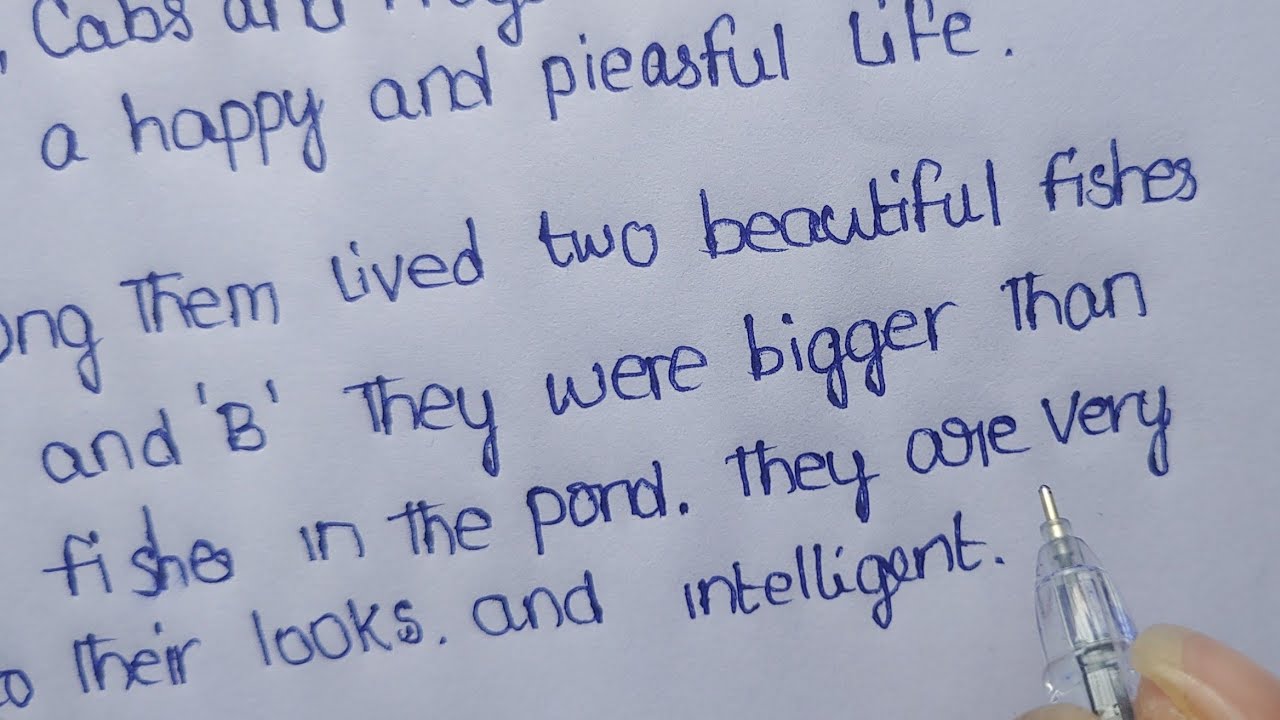 , Cabs and
a happy and pieasful life.
ong Them lived two beautiful fishes
and 'B' They were bigger Than
fishes in the pond. They are very
to their looks. and intelligent.